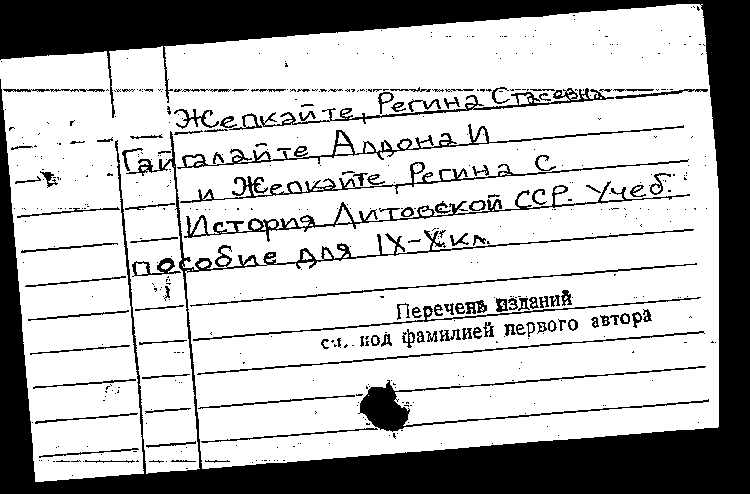 Жепкайте, Регина Стасевна
Гайгалайте, Алдона И
и Жепкайте, Регина С
История Литовской ССР. Учеб.
пособие для IX-X кл.
Перечень изданий
см. под фамилией первого автора